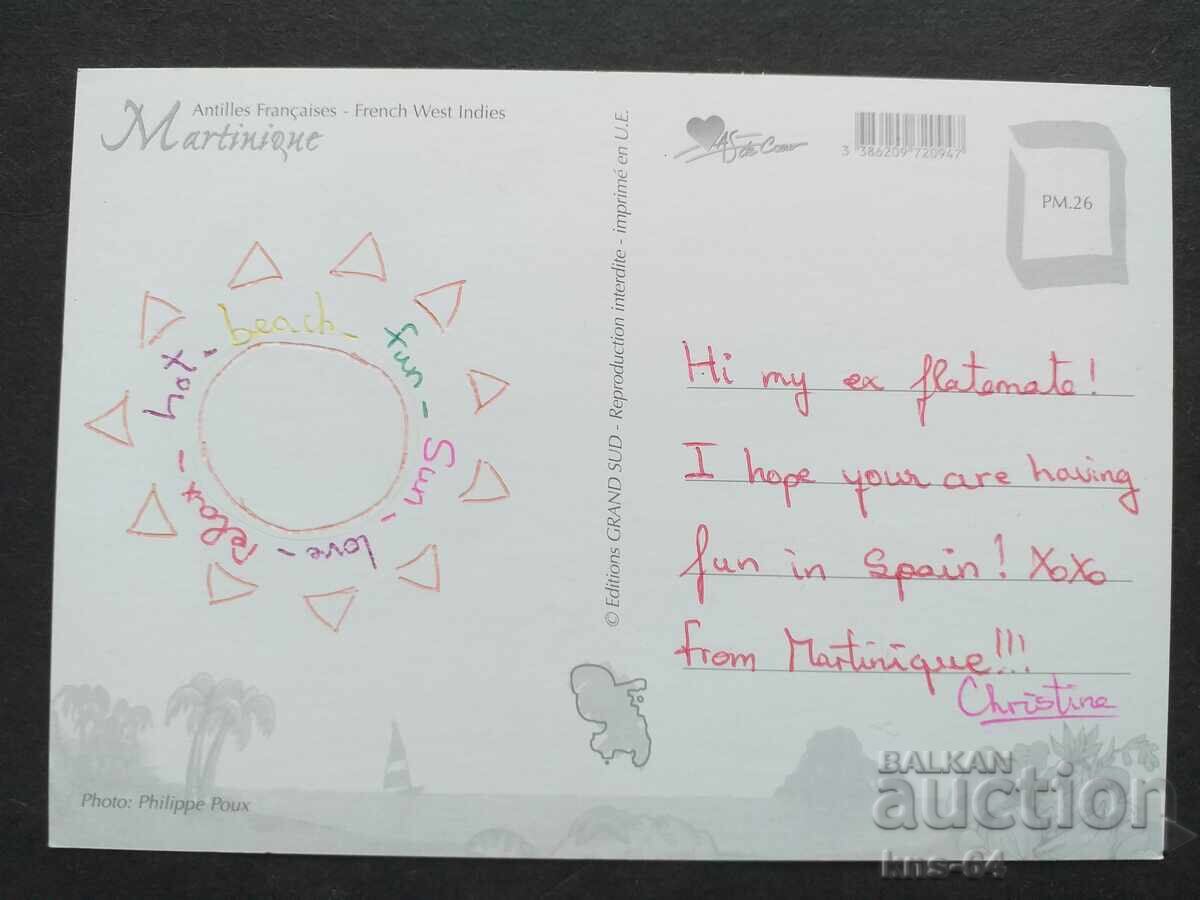 Antilles Françaises - French West Indies
Martinique
As de Cœur
3 386209 720947
PM.26
© Editions GRAND SUD - Reproduction interdite - imprimé en U.E.
beach -
fun -
Sun -
love -
relax -
hot -
Hi my ex flatemate!
I hope your are having
fun in Spain! XoXo
from Martinique!!!
Christine
Photo: Philippe Poux
BALKAN
auction
kns-64